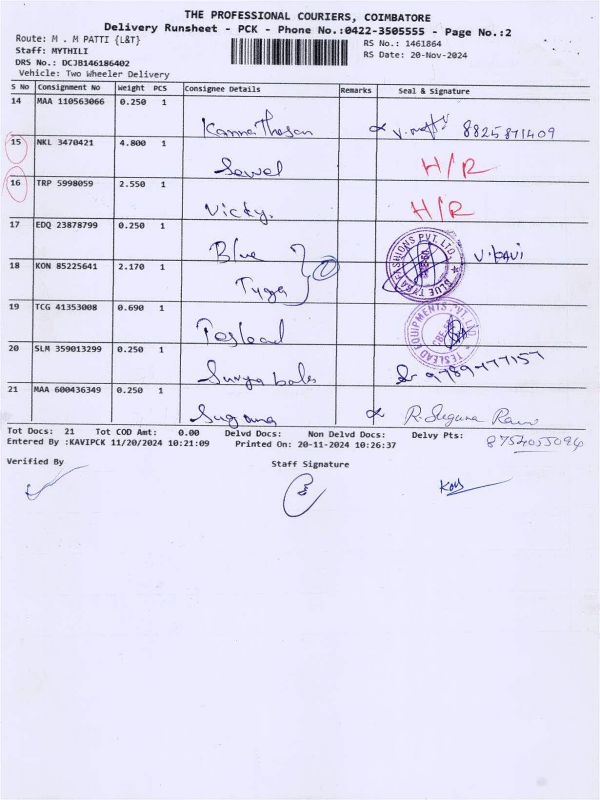 THE PROFESSIONAL COURIERS, COIMBATORE
Delivery Runsheet - PCK - Phone No.:0422-3505555 - Page No.:2
Route: M . M PATTI {L&T}
RS No.: 1461864
Staff: MYTHILI
RS Date: 20-Nov-2024
DRS No.: DCJB146186402
Vehicle: Two Wheeler Delivery
S No Consignment No Weight PCS Consignee Details Remarks Seal & Signature
14 MAA 110563066 0.250 1
8825871409
15 NKL 3470421 4.800 1
H/R
16 TRP 5998059 2.550 1
Vicky. H/R
17 EDQ 23878799 0.250 1
Blue
18 KON 85225641 2.170 1
Tyga
BLUE TYGA FASHIONS PVT LTD.
19 TCG 41353008 0.690 1
Teslead
TESLEAD EQUIPMENTS PVT. LTD
20 SLM 359013299 0.250 1
Surya bala 9789477157
21 MAA 600436349 0.250 1
Suguna R. Suguna
8754055094
Tot Docs: 21 Tot COD Amt: 0.00 Delvd Docs: Non Delvd Docs: Delvy Pts:
Entered By :KAVIPCK 11/20/2024 10:21:09 Printed On: 20-11-2024 10:26:37
Verified By Staff Signature